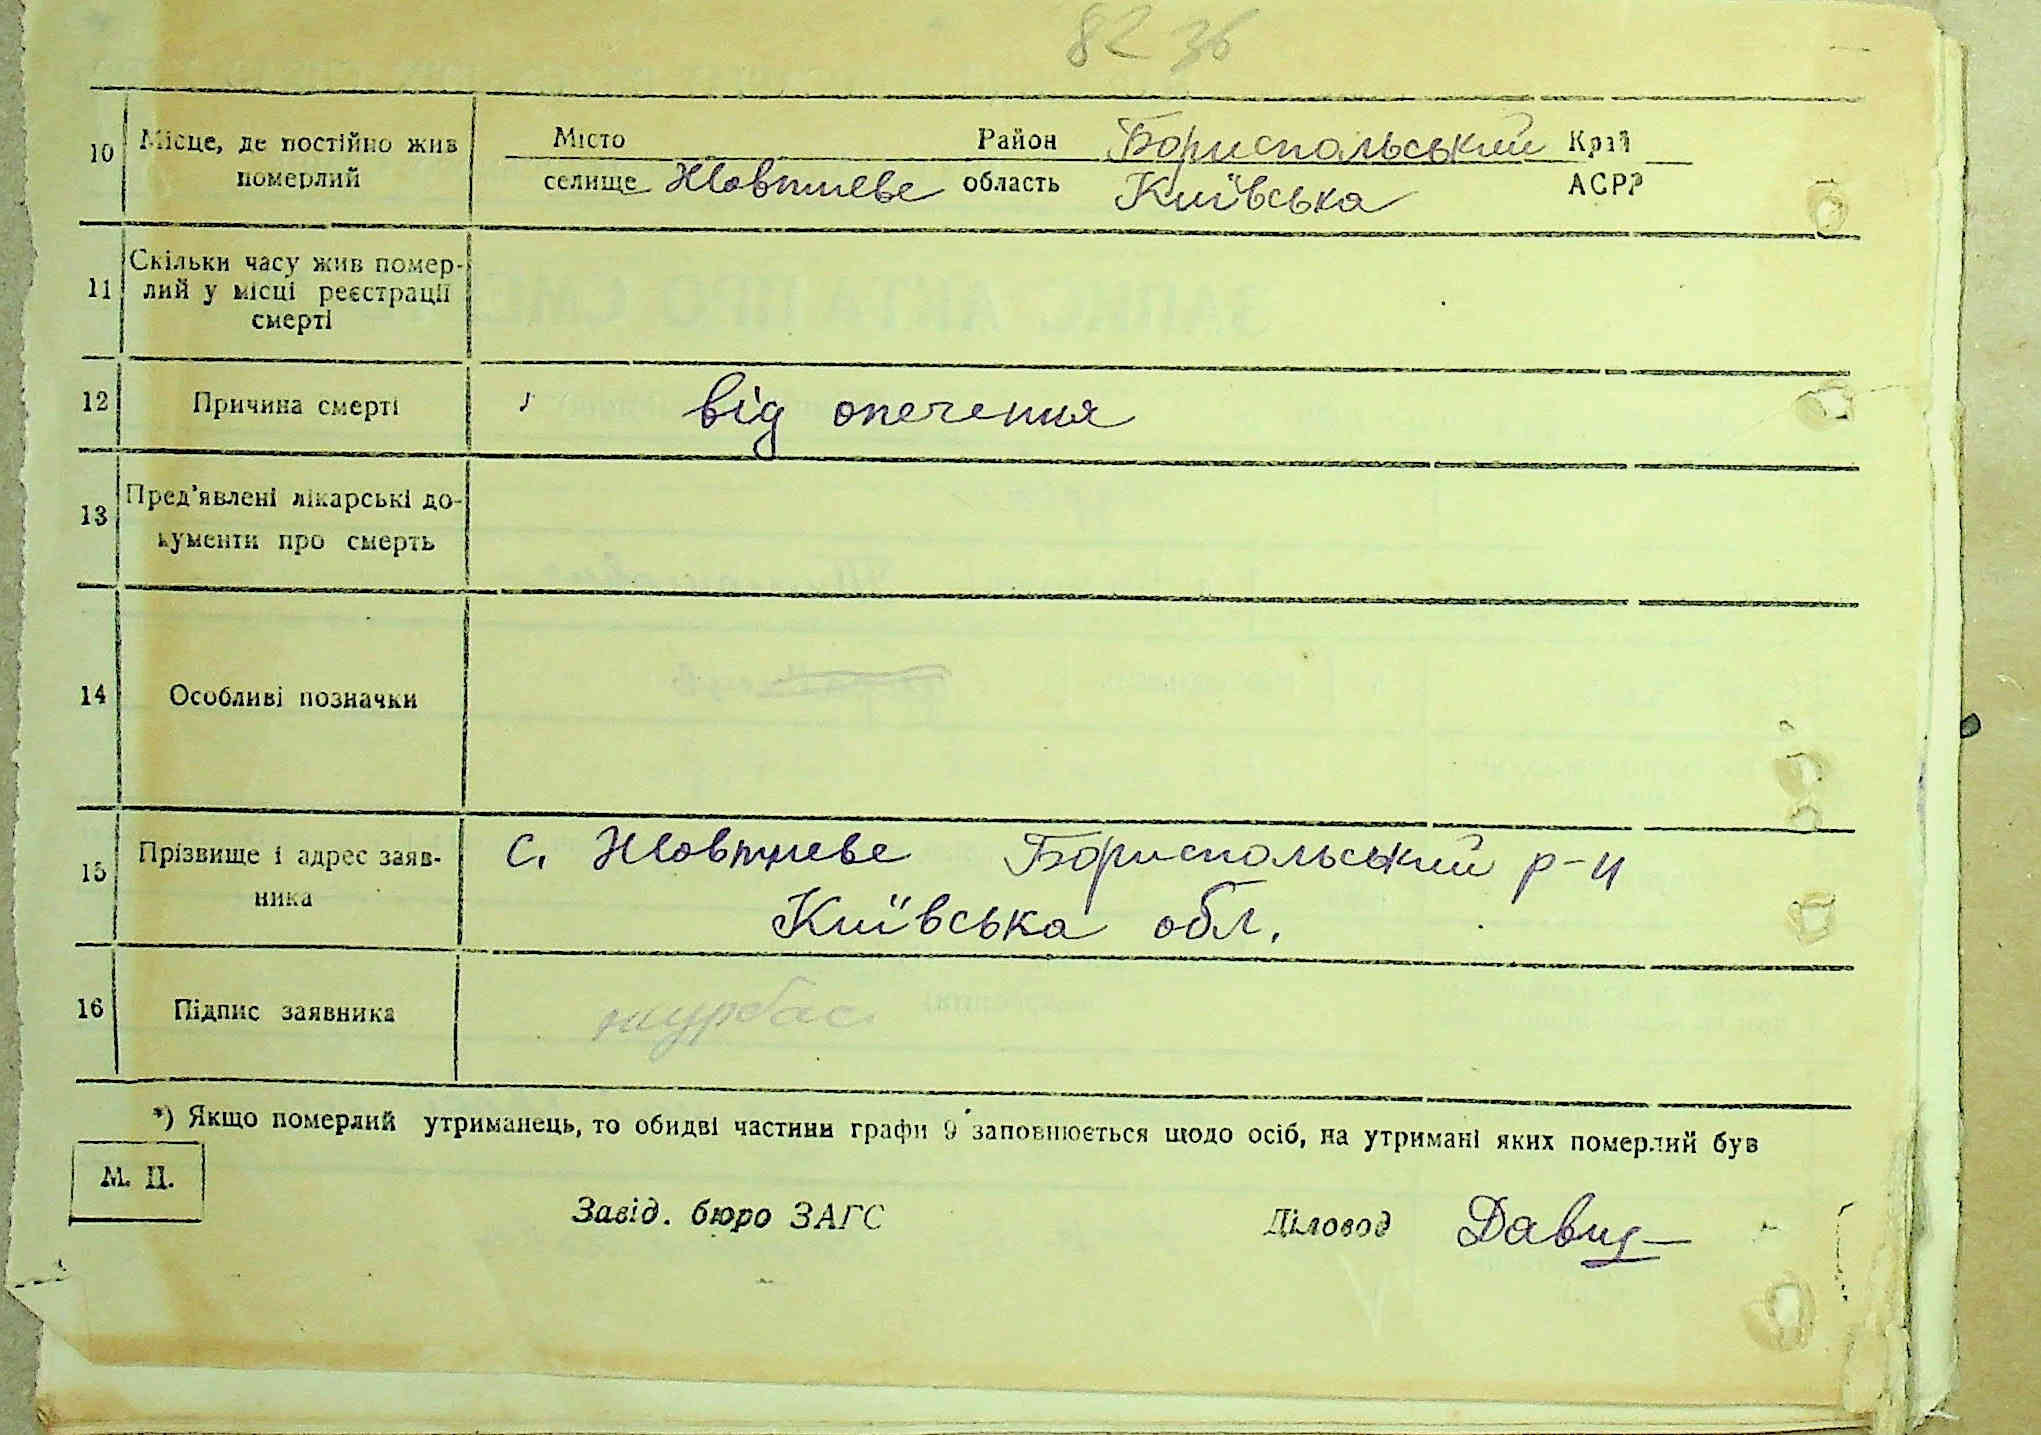 82 зв
10 Місце, де постійно жив померлий
Місто Район Бориспольський Край
селище Жовтневе область Київська АСРР
11 Скільки часу жив помер-
лий у місці реєстрації
смерті
12 Причина смерті від опечення
13 Пред'явлені лікарські до-
кументи про смерть
14 Особливі позначки
15 Прізвище і адрес заяв-
ника
с. Жовтневе Бориспольський р-н
Київська обл.
16 Підпис заявника
*) Якщо померлий утриманець, то обидві частини графи 9 заповнюється щодо осіб, на утримані яких померлий був
М. П.
Завід. бюро ЗАГС Діловод Давид